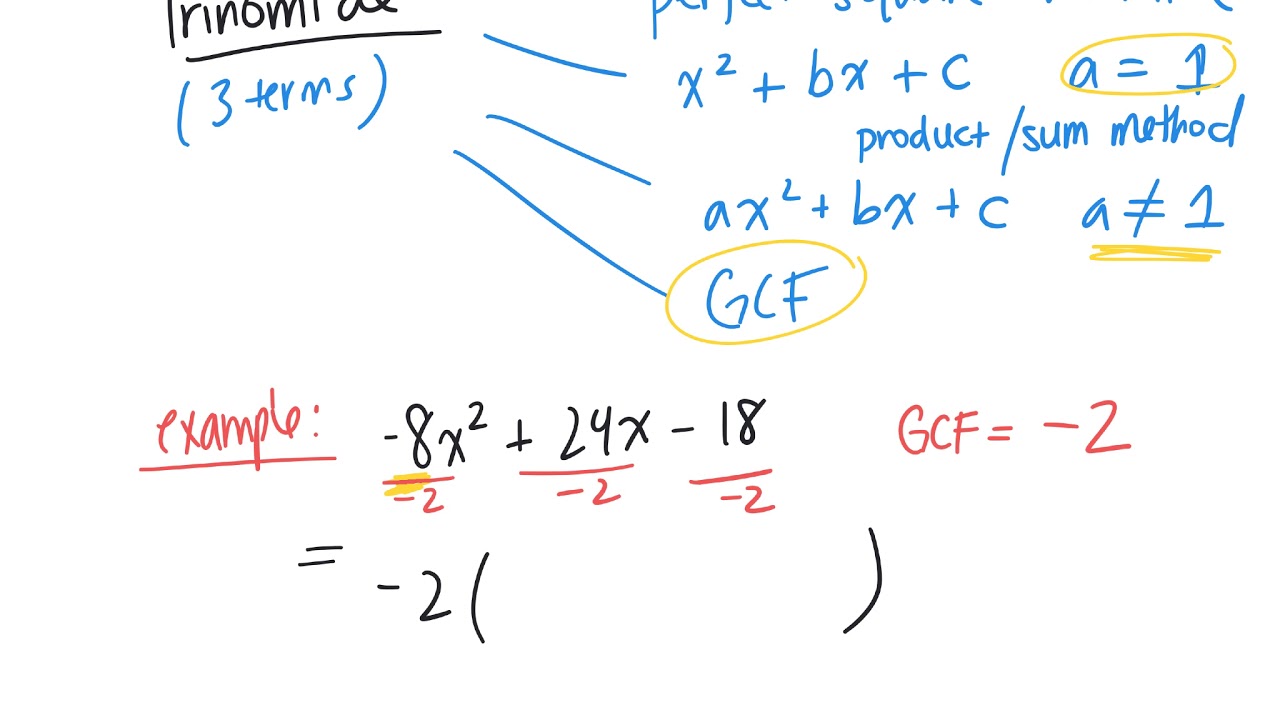 Trinomial
(3 terms)
x² + bx + c a = 1
product/sum method
ax² + bx + c a ≠ 1
GCF
example: -8x² + 24x - 18 GCF = -2
-2 -2 -2
= -2( )